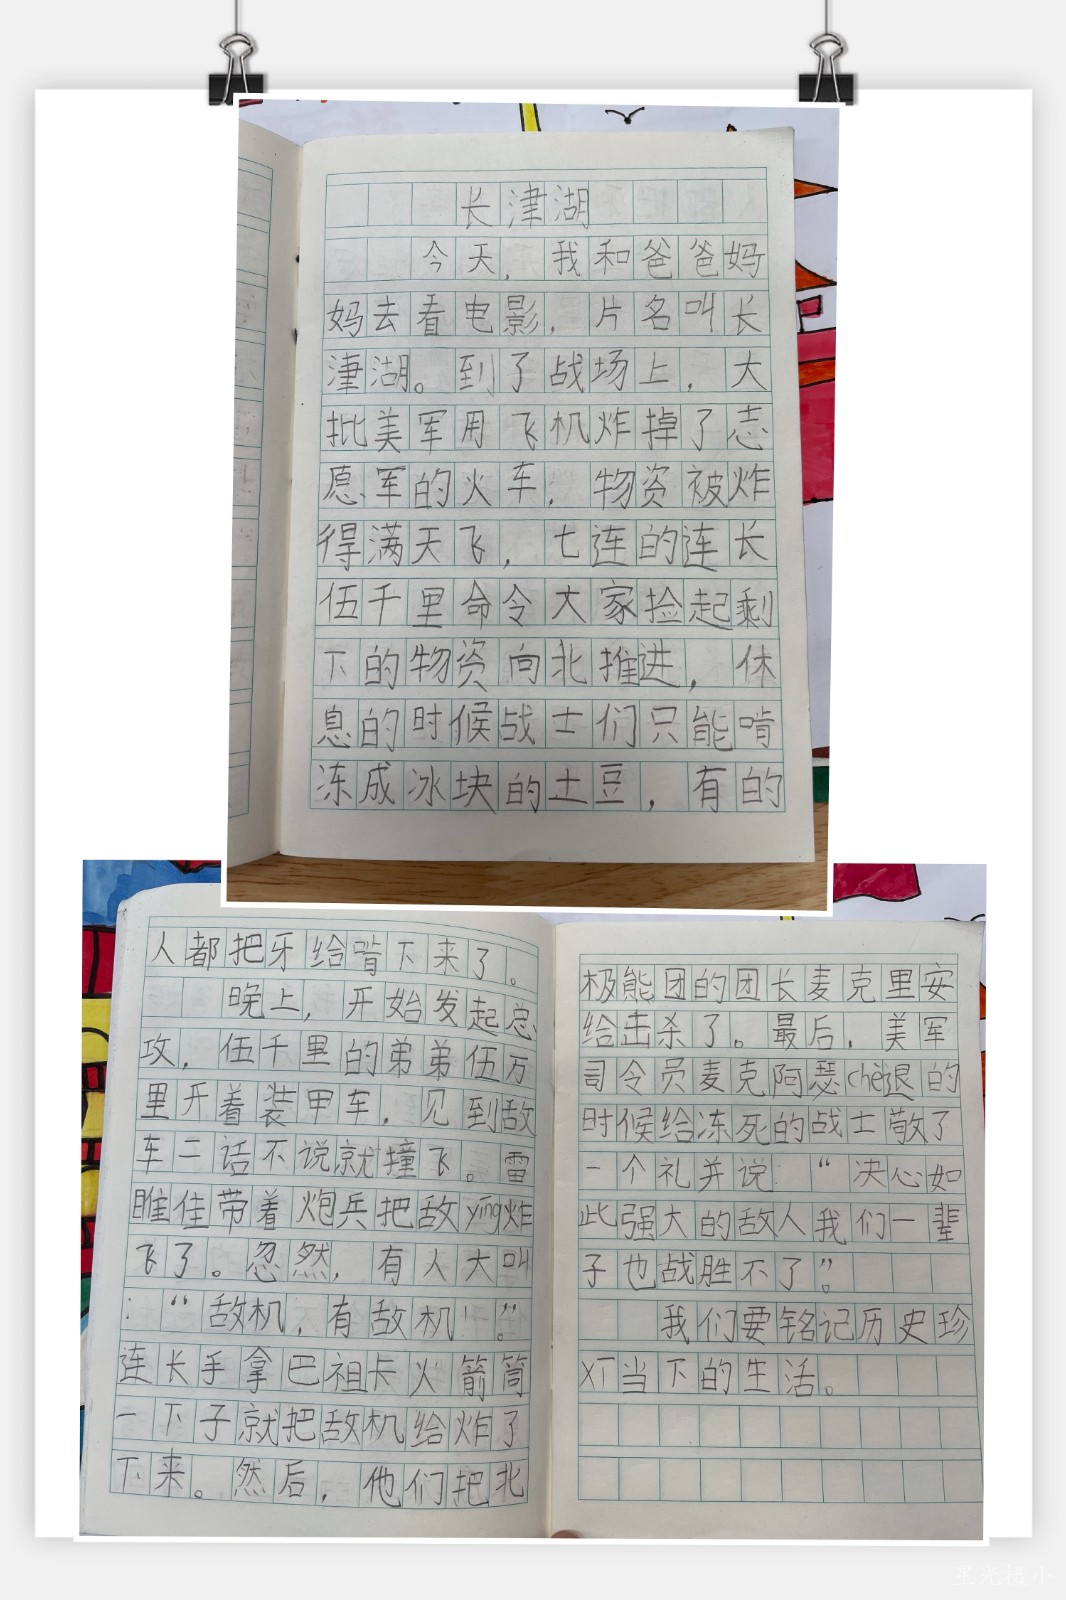 长津湖
今天，我和爸爸妈
妈去看电影，片名叫长
津湖。到了战场上，大
批美军用飞机炸掉了志
愿军的火车，物资被炸
得满天飞，七连的连长
伍千里命令大家捡起剩
下的物资向北推进，休
息的时候战士们只能啃
冻成冰块的土豆，有的
人都把牙给啃下来了。
晚上，开始发起总
攻，伍千里的弟弟伍万
里开着装甲车，见到敌
车二话不说就撞飞。雷
睢佳带着炮兵把敌yíng炸
飞了。忽然，有人大叫
：“敌机，有敌机！”
连长手拿巴祖卡火箭筒
一下子就把敌机给炸了
下来。然后，他们把北
极熊团的团长麦克里安
给击杀了。最后，美军
司令员麦克阿瑟chè退的
时候给冻死的战士敬了
一个礼并说：“决心如
此强大的敌人我们一辈
子也战胜不了”。
我们要铭记历史珍
xī当下的生活。
星光摄小